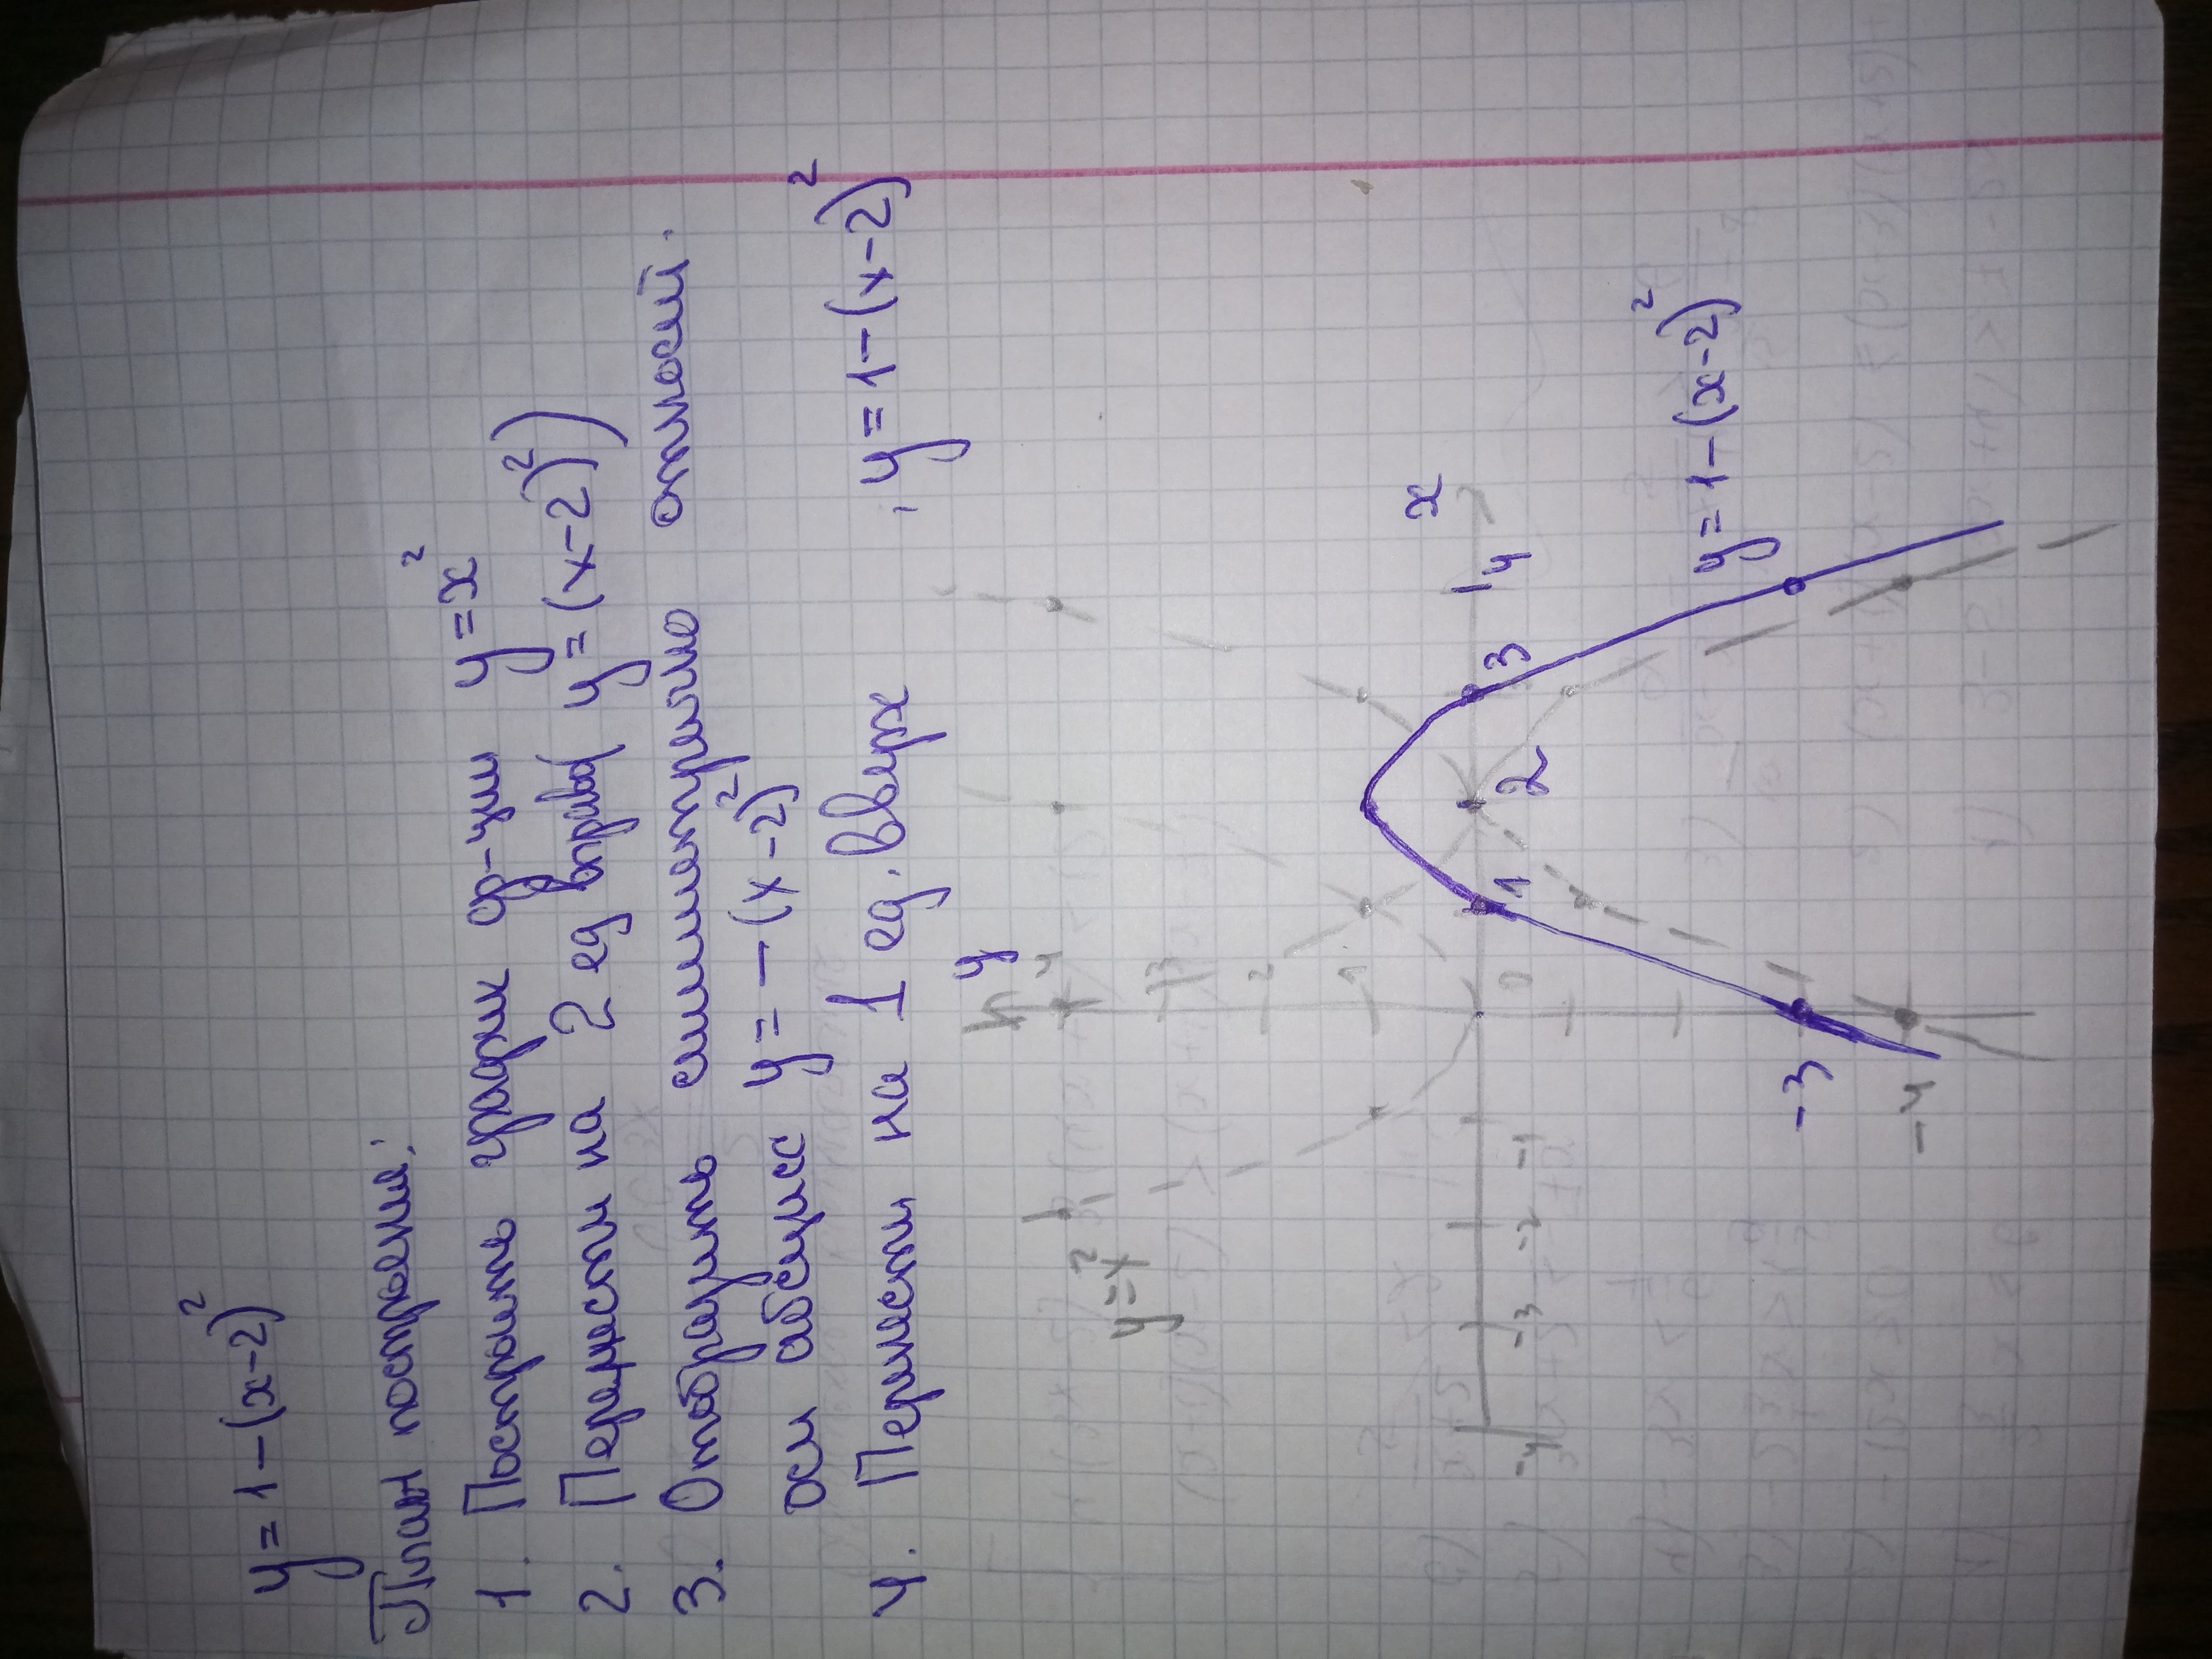 y = 1 - (x-2)²
План построения:
1. Построить график ф-ции y = x²
2. Перенести на 2 ед вправо( y = (x-2)²)
3. Отобразить симметрично относит.
оси абсцисс y = - (x-2)²
4. Перенести на 1 ед. вверх, y = 1 - (x-2)²
y
4
y = x²
3
2
1
x
-4 -3 -2 -1 0 1 2 3 4
y = 1 - (x-2)²
-3
-4